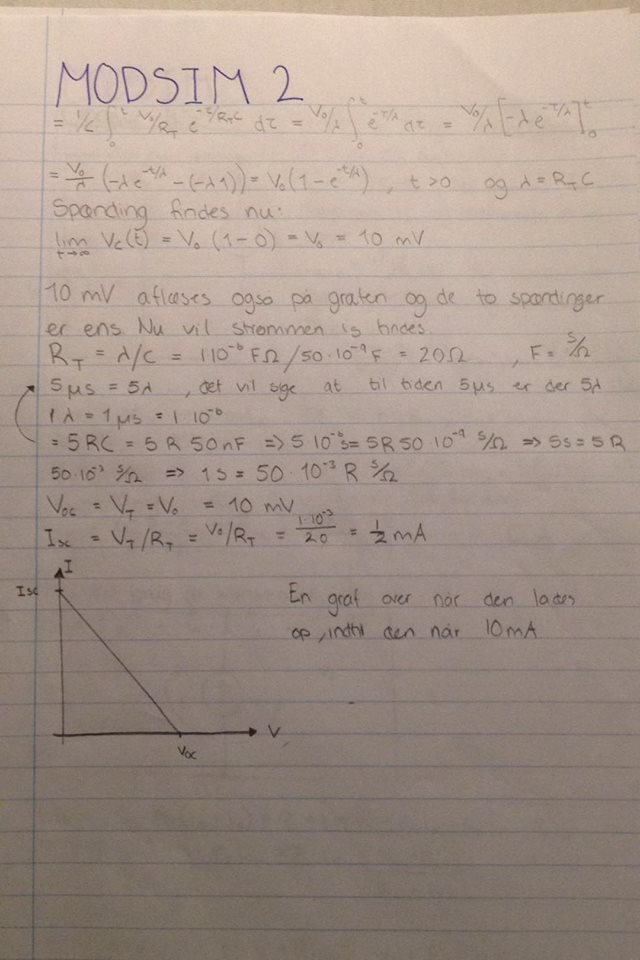 MODSIM 2
= 1/C ∫₀ᵗ V₀/R_T e^(-τ/R_T C) dτ = V₀/λ ∫₀ᵗ e^(-τ/λ) dτ = V₀/λ [-λe^(-τ/λ)]₀ᵗ
= V₀/λ (-λe^(-t/λ) - (-λ1)) = V₀(1-e^(-t/λ)) , t>0 og λ=R_T C
Spænding findes nu:
lim t→∞ Vc(t) = V₀ (1-0) = V₀ = 10 mV
10 mV aflæses også på grafen og de to spændinger
er ens. Nu vil strømmen is findes.
R_T = λ/C = 1·10⁻⁶ FΩ/50·10⁻⁹F = 20Ω , F = S/Ω
5μs = 5λ , det vil sige at til tiden 5μs er der 5λ
1λ = 1μs = 1·10⁻⁶
= 5RC = 5R 50nF => 5·10⁻⁶s = 5R 50·10⁻⁹ S/Ω => 5s = 5R
50·10⁻³ S/Ω => 1s = 50·10⁻³ R S/Ω
Voc = V_T = V₀ = 10 mV
Isc = V_T/R_T = V₀/R_T = 1·10⁻³/20 = 1/2 mA
I
Isc
En graf over når den lades
op, indtil den når 10mA
V
Voc